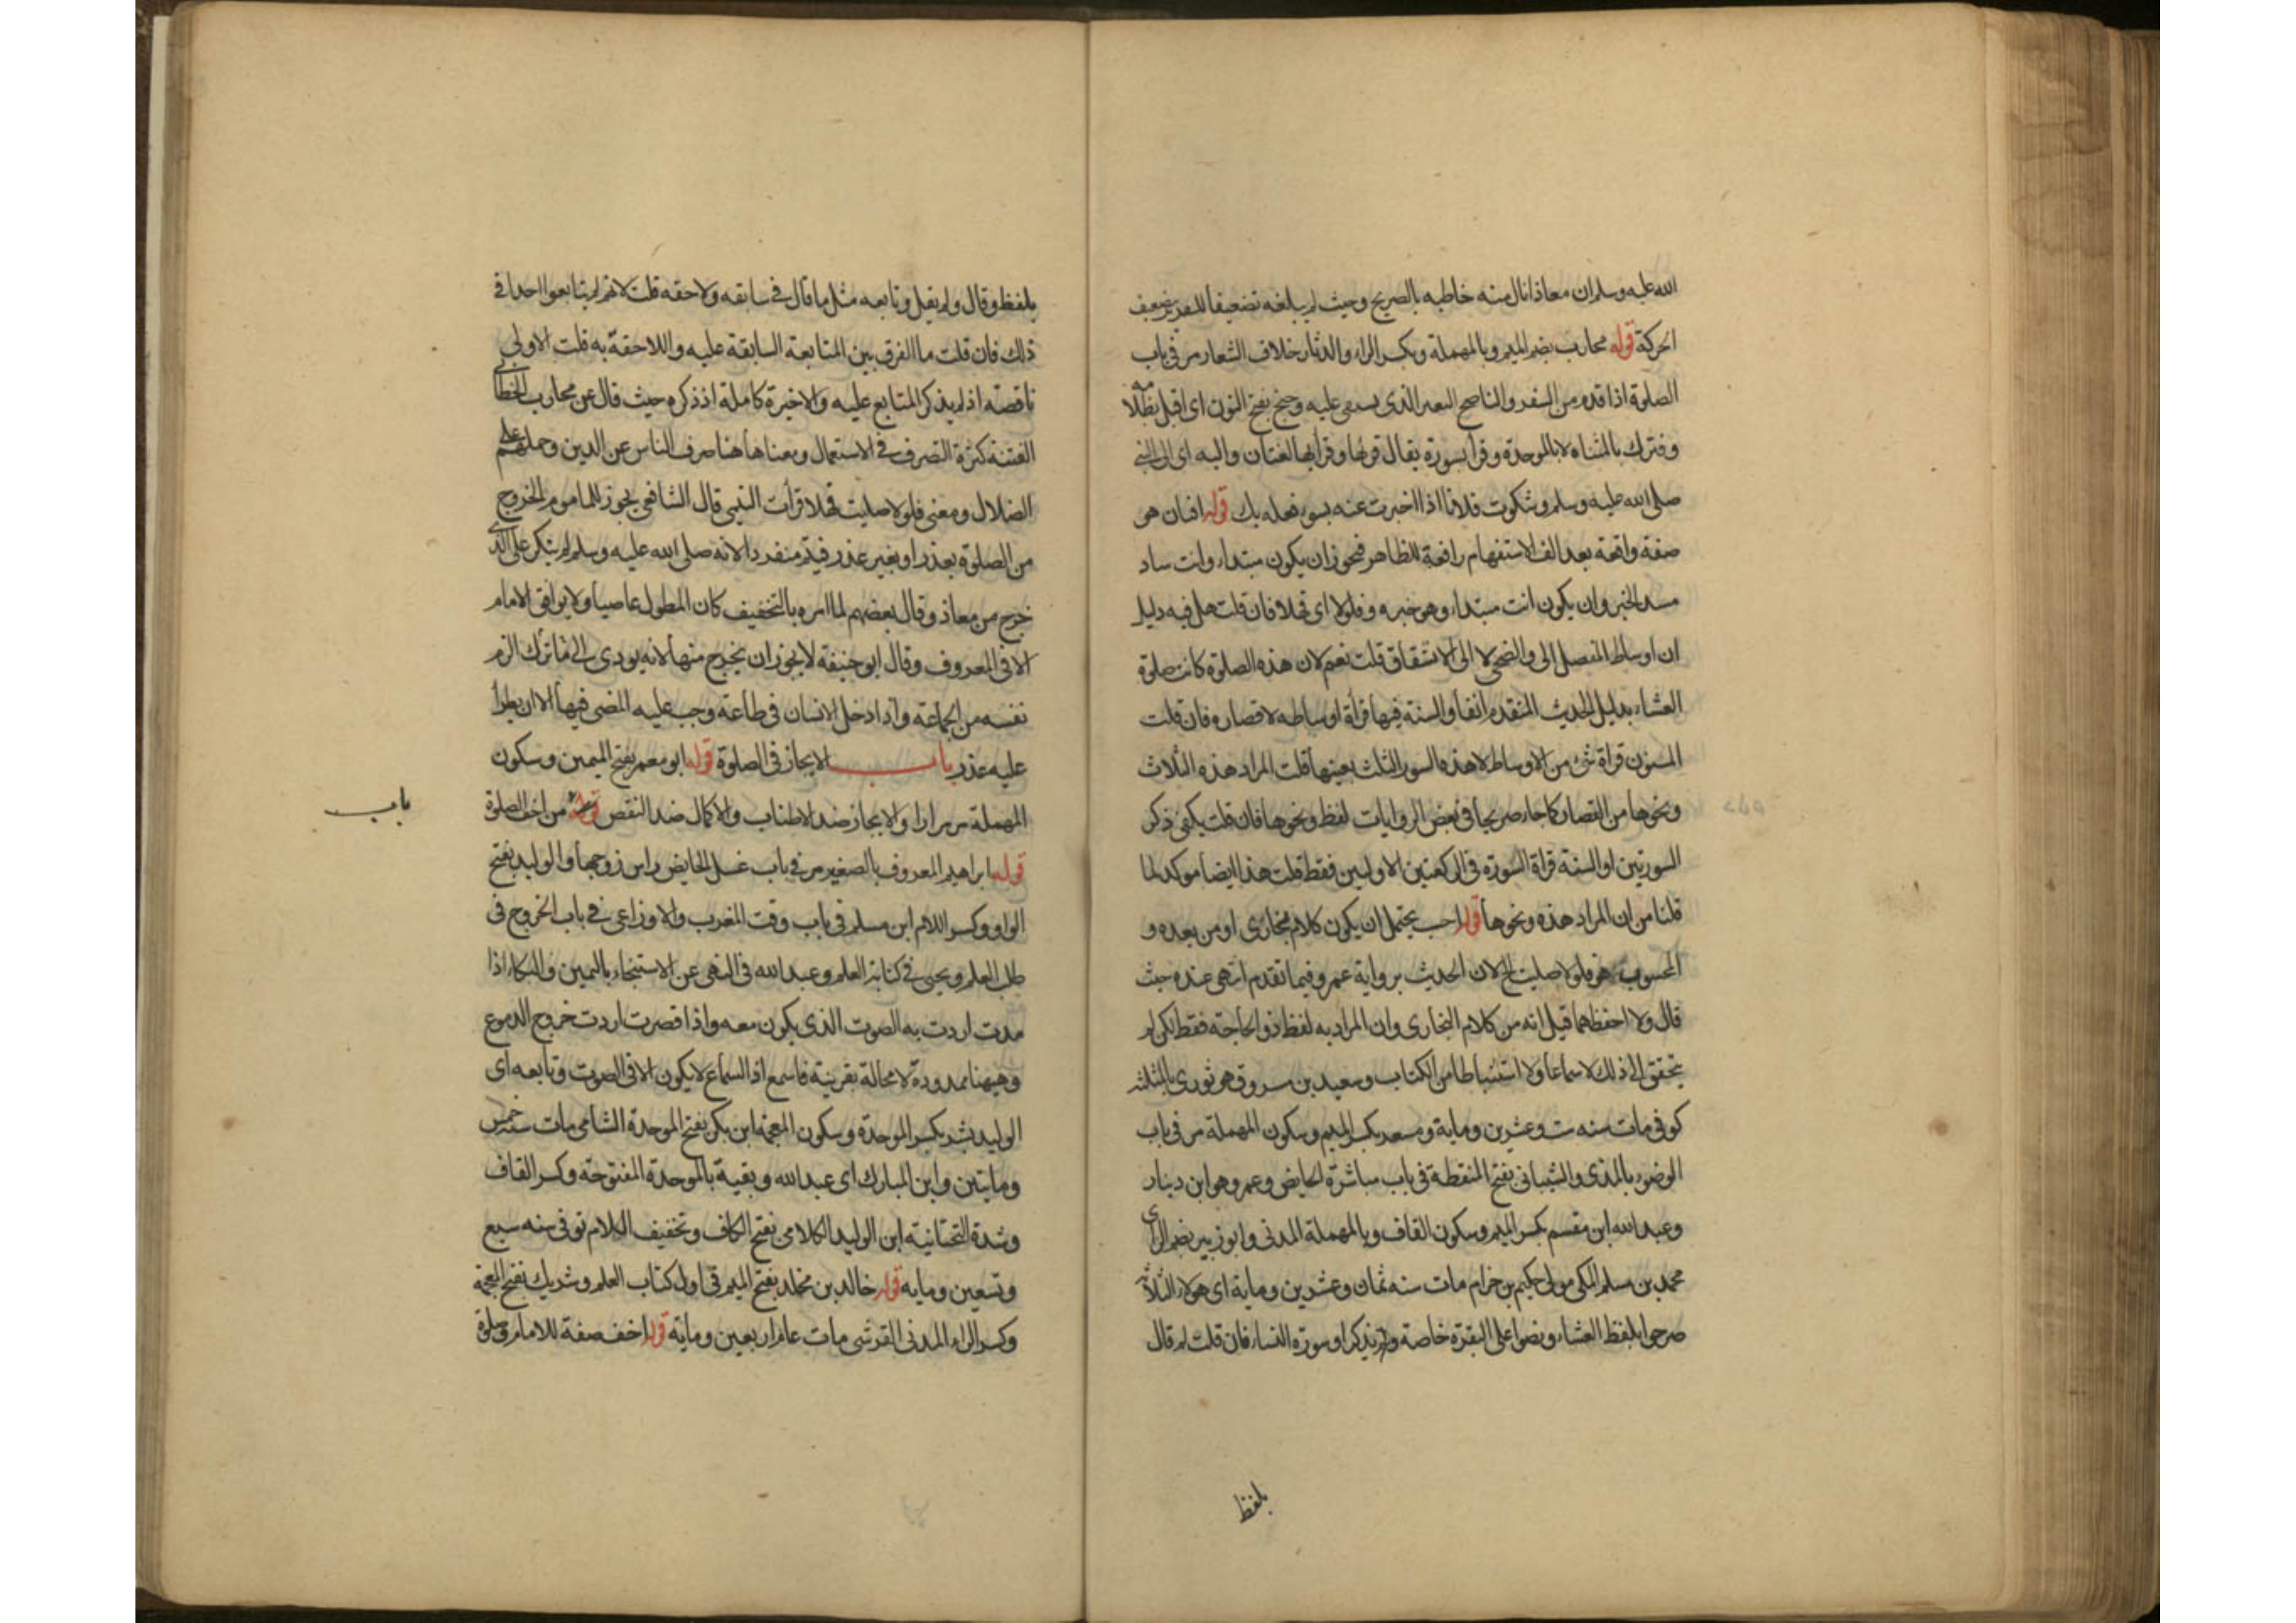 الله عليه وسلم ان معاذا نال منه خاطبه بالصريح وحيث لم يبلغه تضعيفا للتعزير بضعيف
الحركة قوله محارب بضم الميم وبالمهملة وبكسر الراء والدثار خلاف الشعار مر في باب
الصلوة اذا قدم من السفر والناضح البعير الذى يسقى عليه وجنح بفتح النون اى اقبل بظلامه
وفترك بالمثناه لا بالموحدة وقرا بسورة يقال قرءها وقرأ بها لغتان واليه اى الى النبي
صلى الله عليه وسلم وشكوت فلانا اذا اخبرت عنه بسوء فعله بك قوله افتان هى
صفة واقعة بعد الف الاستفهام رافعة للظاهر فيجوز ان يكون مبتداء وانت ساد
مسد الخبر وان يكون انت مبتداء وهو خبره وفلولا اى فهلا فان قلت هل فيه دليل
ان اوساط المفصل الى والضحى لا الى الانشقاق قلت نعم لان هذه الصلوة كانت صلوة
العشاء بدليل الحديث المتقدم انفا والسنة فيها قرأة اوساطه لا قصاره فان قلت
المسنون قراة شئ من الاوساط لا هذه السور الثلث بعينها قلت المراد هذه الثلاث
ونحوها من القصار كما جاء صريحا في بعض الروايات لفظ ونحوها فان قلت يكفى ذكر
السورتين او السنة قراة السورة في الركعتين الاوليين فقط قلت هذا ايضا موكد لما
قلنا من ان المراد هذه ونحوها قوله احسب يحتمل ان يكون كلام بخارى او من بعده و
المحسوب هو فلولا صليت الخ لان الحديث برواية عمرو فيما تقدم انتهى عنده حيث
قال ولا احفظهما قيل انه من كلام البخارى وان المراد به لفظ ذو الحاجة فقط لكن لم
يتحقق لى ذلك لا سماعا ولا استنباطا من الكتاب وسعيد بن مسروق هو ثورى بالمثلثه
كوفى مات سنه ست وعشرين وماية ومسعر بكسر الميم وسكون المهملة مر فى باب
الوضوء بالمد والشيبانى بفتح المنقطة فى باب مباشرة الحايض وعمرو هو ابن دينار
وعبد الله ابن مقسم بكسر الميم وسكون القاف وبالمهملة المدنى وابو زبير بضم الزاى
محمد بن مسلم المكى مولى حكيم بن حزام مات سنه ثمان وعشرين وماية اى هولاء الثلاثه
صرحوا بلفظ العشاء ونصوا على البقرة خاصة ولم يذكر او سورة النساء فان قلت لم قال
بلفظ
بلفظ وقال ولم يقل وتابعه مثل ما قال فى سابقه ولاحقه قلت لانهم لم يتابعوا احدا فى
ذلك فان قلت ما الفرق بين المتابعة السابقة عليه واللاحقة به قلت الاولى
ناقصة اذ لم يذكر المتابع عليه والاخيرة كاملة اذ ذكره حيث قال عن محارب الخطابى
الفتنة كثرة التصرف فى الاستعمال ومعناها هنا صرف الناس عن الدين وحملهم على
الضلال ومعنى فلولا صليت فهلا قرأت التيمى قال الشافعى يجوز للماموم الخروج
من الصلوة بعذر او بغير عذر فيتم منفردا لانه صلى الله عليه وسلم لم ينكر على الذى
خرج من معاذ وقال بعضهم لما امره بالتخفيف كان المطول عاصيا ولا يوافق الامام
الا فى المعروف وقال ابو حنيفة لا يجوز ان يخرج منها لانه يودى الى ما ترك الزم
نفسه من الجماعة واذا دخل الانسان فى طاعة وجب عليه المضى فيها الا ان يطرأ
عليه عذر باب الايجاز فى الصلوة قوله ابو معمر بفتح الميمين وسكون
باب
المهملة مر مرارا والايجاز ضد الاطناب والاكمال ضد النقص من اخف الصلوة
قوله ابراهيم المعروف بالصغير مر فى باب غسل الحايض راس زوجها والوليد بفتح
الواو وكسر اللام ابن مسلم فى باب وقت المغرب والاوزاعى فى باب الخروج فى
طلب العلم ويحيى فى كتابة العلم وعبد الله فى النهى عن الاستنجاء باليمين والبكاء اذا
مددت اردت به الصوت الذى يكون معه واذا قصرت اردت خروج الدموع
وهيهنا ممدودة لا محالة بقرينة فاسمع اذ السماع لا يكون الا فى الصوت وتابعه اى
الوليد بشر بكسر الموحدة وسكون المعجمة ابن بكر بفتح الموحدة الشامى مات سنه خمس
ومايتين وابن المبارك اى عبد الله وبقية بالموحدة المفتوحة وكسر القاف
وشدة التحتانية ابن الوليد الكلامى بفتح الكاف وتخفيف اللام توفى سنه سبع
وتسعين ومايه قوله خالد بن مخلد بفتح الميم فى اول كتاب العلم وشريك بفتح المعجمة
وكسر الراء المدنى القرشى مات عام اربعين ومايه قوله اخف صفة للامام وصلوة